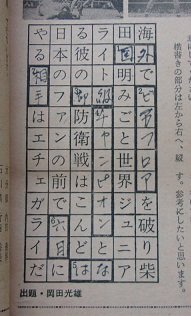 海外でビラフロアを破り柴
田国明みごと世界ジュニア
ライト級チャンピオンとな
る彼の初防衛戦はこんどは
日本のファンの前で六日に
やる相手はエチェガライだ
出題・岡田光雄
横書きの部分は左から右へ、綴
す。参考にしたいと思います。